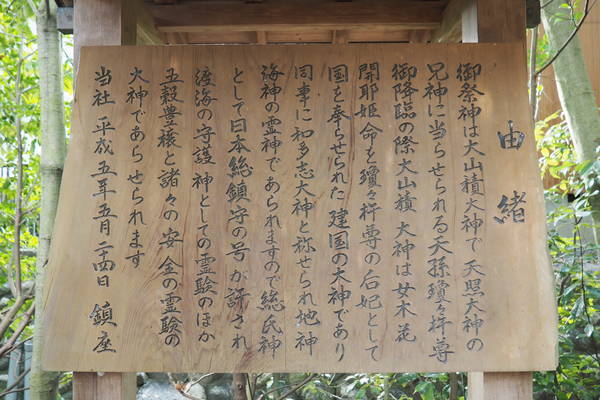 由緒
御祭神は大山積大神で天照大神の
兄神に当らせられる天孫瓊々杵尊
御降臨の際大山積大神は女木花
開耶姫命を瓊々杵尊の后妃として
国を奉らせられた建国の大神であり
同事に和多志大神と称せられ地神
海神の霊神であられますので総氏神
として日本総鎮守の号が許され
渡海の守護神としての霊験のほか
五穀豊穣と諸々の安全の霊験の
大神であらせられます
当社平成五年五月二四日鎮座